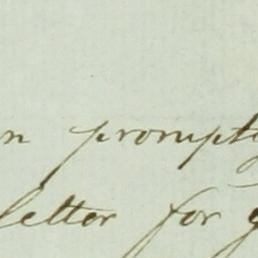 n prompty
letter for